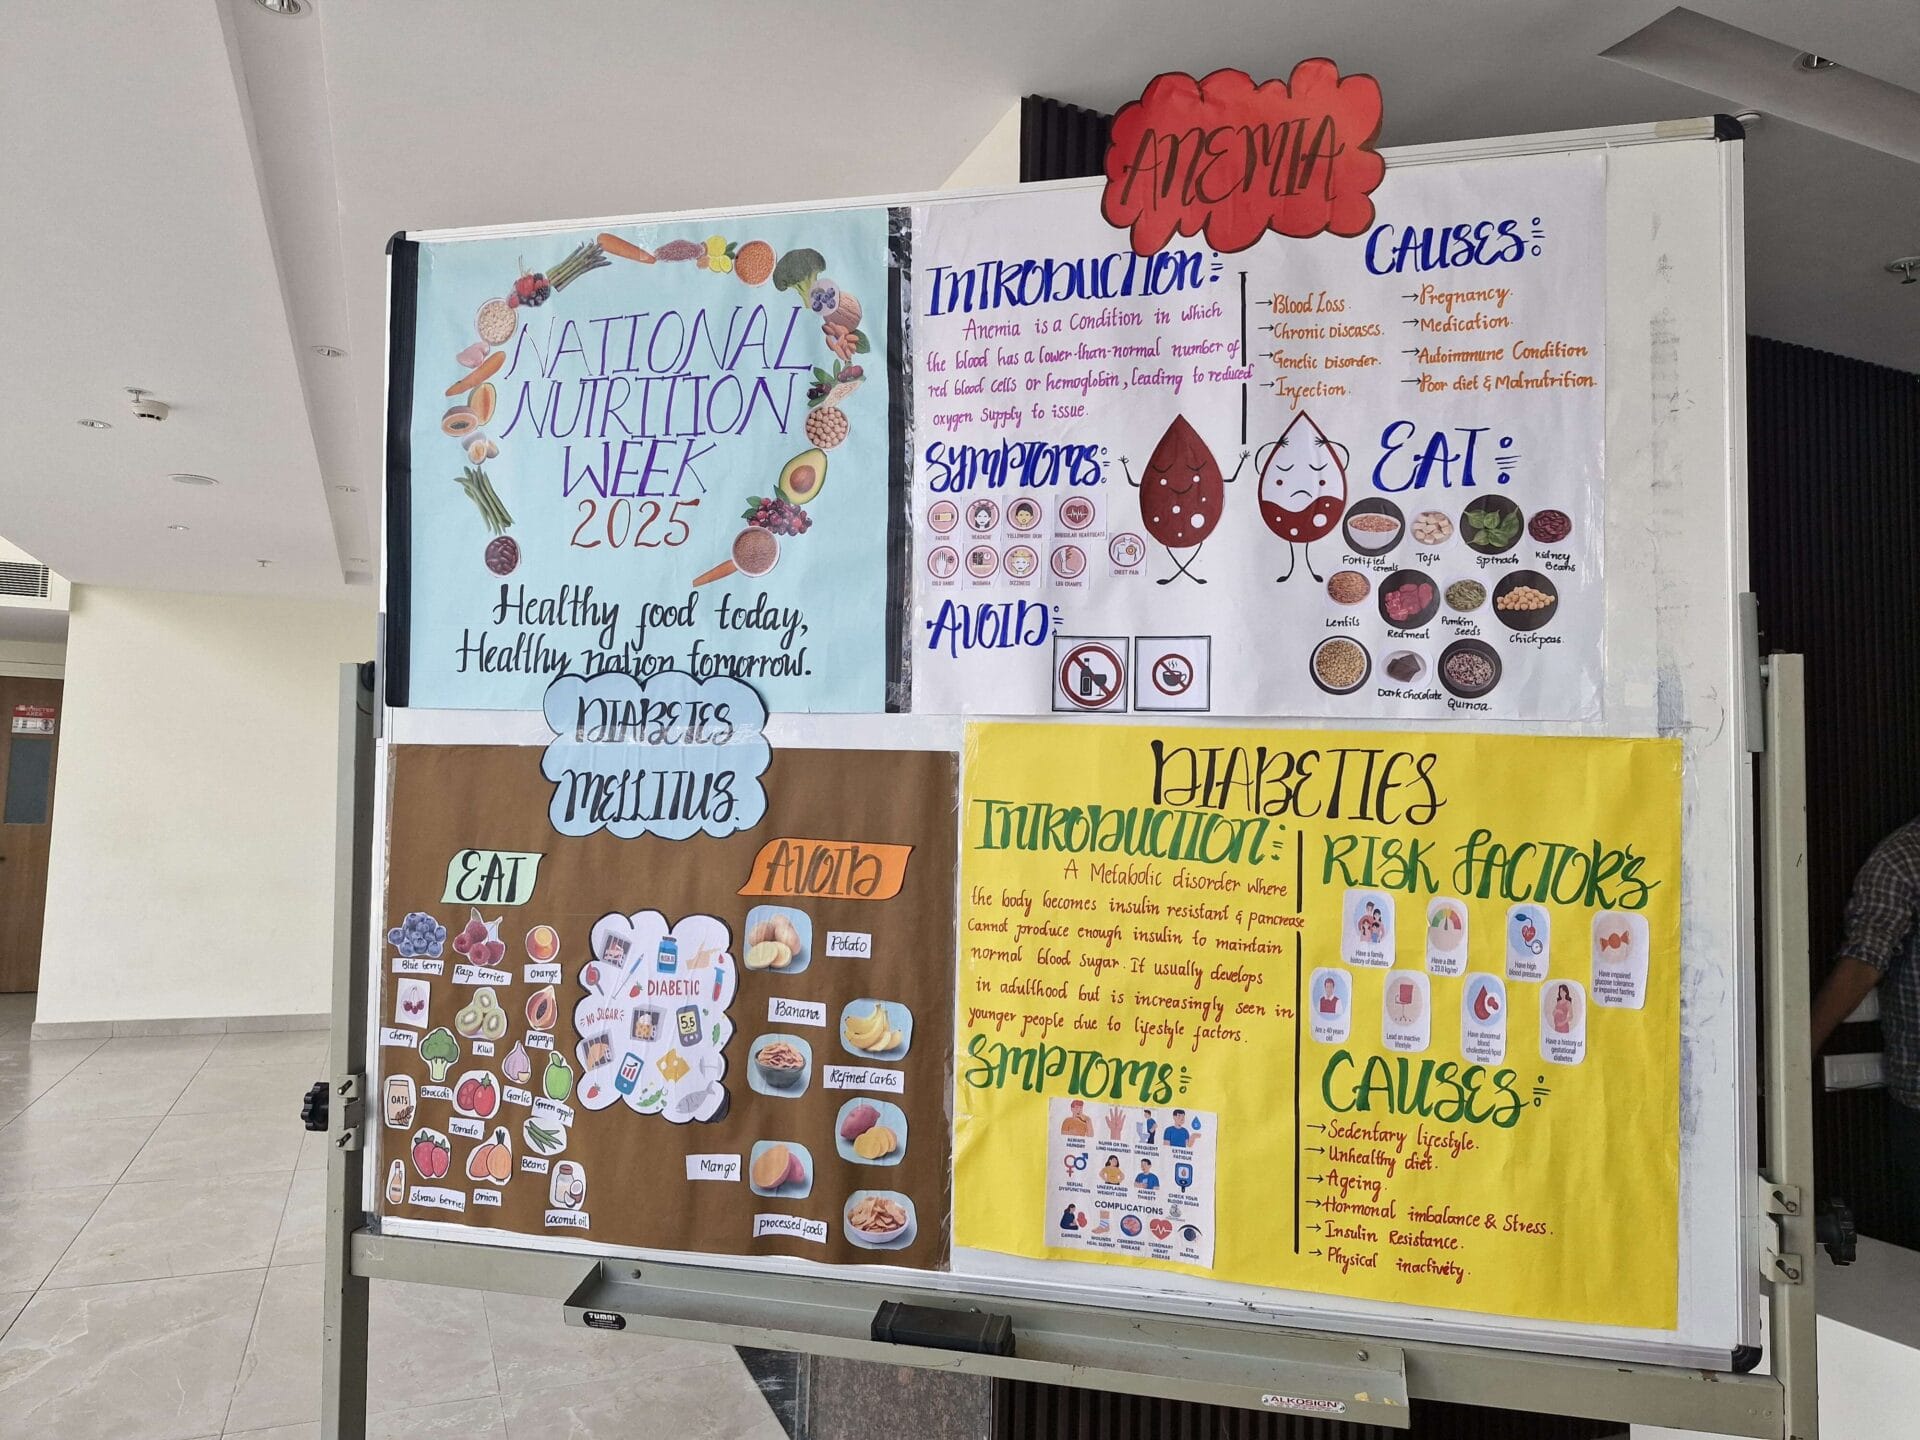 ANEMIA
NATIONAL
NUTRITION
WEEK
2025
Healthy food today,
Healthy nation tomorrow.
INTRODUCTION:
Anemia is a Condition in which
the blood has a lower-than-normal number of
red blood cells or hemoglobin, leading to reduced
oxygen supply to issue.
CAUSES:
→Blood Loss.
→Chronic Diseases.
→Genetic Disorder.
→Infection.
→Pregnancy.
→Medication.
→Autoimmune Condition
→Poor diet & Malnutrition.
SYMPTOMS:
FATIGUE
HEADACHE
YELLOWISH SKIN
IRREGULAR HEARTBEATS
COLD HANDS
INSOMNIA
DIZZINESS
LEG CRAMPS
CHEST PAIN
AVOID:
EAT:
Fortified cereals
Tofu
Spinach
Kidney Beans
Lentils
Redmeat
Pumkin seeds
Chickpeas.
Dark chocolate
Quinoa.
DIABETES
MELLITUS.
EAT
Blue berry
Rasp berries
orange
Cherry
Kiwi
papaya
Broccoli
Garlic
Green apple
OATS
Tomato
Beans
straw berries
onion
coconut oil
DIABETIC
NO SUGAR
5.5
AVOID
Potato
Banana
Refined Carbs
Mango
processed foods
DIABETIES
INTRODUCTION:
A Metabolic disorder where
the body becomes insulin resistant & pancrease
Cannot produce enough insulin to maintain
normal blood sugar. It usually develops
in adulthood but is increasingly seen in
younger people due to lifestyle factors.
SMPTOMS:
ALWAYS HUNGRY
NUMB OR TINGLING HANDS/FEET
FREQUENT URINATION
EXTREME FATIGUE
SEXUAL DYSFUNCTION
UNEXPLAINED WEIGHT LOSS
ALWAYS THIRSTY
CHECK YOUR BLOOD SUGAR
COMPLICATIONS
CANDIDA
WOUNDS HEAL SLOWLY
CEREBROVAS DISEASE
CORONARY HEART DISEASE
EYE DAMAGE
RISK FACTOR'S
Have a family history of diabetes
Have a BMI ≥ 23.0 kg/m²
Have high blood pressure
Have impaired glucose tolerance or impaired fasting glucose
Are ≥ 40 years old
Lead an inactive lifestyle
Have abnormal blood cholesterol/lipid levels
Have a history of gestational diabetes
CAUSES:
→Sedentary lifestyle.
→Unhealthy diet.
→Ageing.
→Hormonal imbalance & Stress.
→Insulin Resistance.
→Physical inactivity.
ALKOSIGN